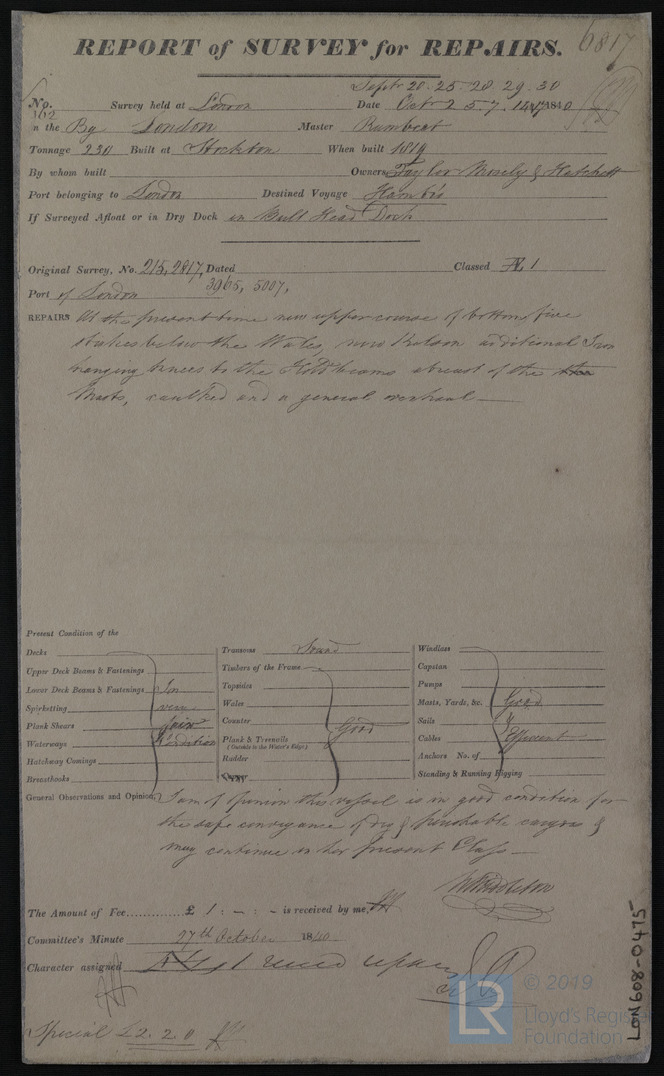 REPORT of SURVEY for REPAIRS. 6817
Septr 20. 25. 28. 29. 30
No. 162 Survey held at London Date Octr 2 5 7. 1840
n the Bg London Master
Tonnage 230 Built at Stockton When built 1819
By whom built Owners Taylor Mosely & Hatchett
Port belonging to London Destined Voyage
If Surveyed Afloat or in Dry Dock in Bull Head Dock
Original Survey, No. 215, 2817, Dated Classed Æ 1
3965, 5007,
Port of London
REPAIRS At the present time new upper course of bottom, five
strakes below the Wales, new Kelson additional Iron
hanging knees to the Hold beams abreast of the
Masts, caulked and a general overhaul
Present Condition of the
Decks
Upper Deck Beams & Fastenings
Lower Deck Beams & Fastenings In
Spirketting very
Plank Shears fair
Waterways Condition
Hatchway Comings
Breasthooks
Transoms Sound
Timbers of the Frame
Topsides
Wales
Counter Good
Plank & Treenails
(Outside to the Water's Edge)
Rudder
Windlass
Capstan
Pumps
Masts, Yards, &c. Good
Sails &
Cables Efficient
Anchors No. of
Standing & Running Rigging
General Observations and Opinion, I am of Opinion this vessel is in good condition for
the safe conveyance of dry & perishable cargoes &
may continue in her present Class
The Amount of Fee............ £ 1 : - : - is received by me,
Committee's Minute 27th October 1840
Character assigned
Special £2. 2. 0
LON608-0475
© 2019
LR
Lloyd's Register
Foundation